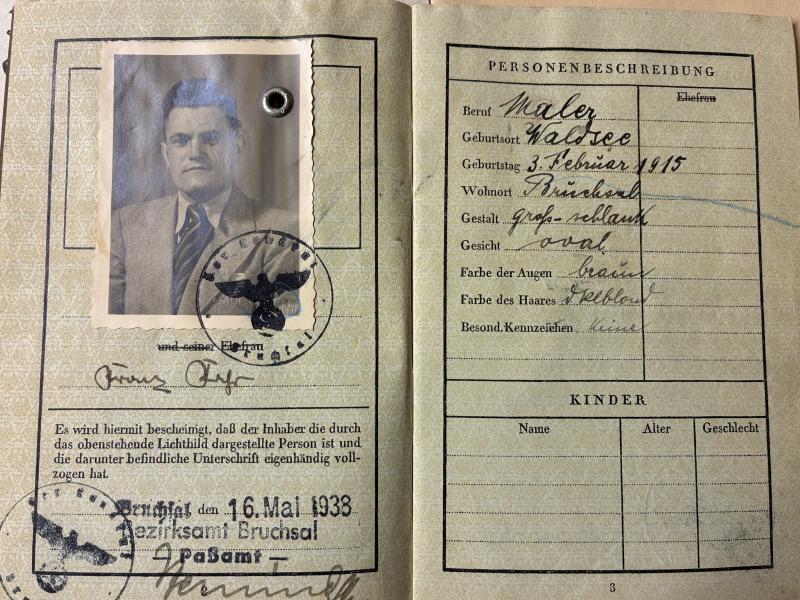 und seiner Ehefrau
Franz Fehr
Es wird hiermit bescheinigt, daß der Inhaber die durch
das obenstehende Lichtbild dargestellte Person ist und
die darunter befindliche Unterschrift eigenhändig voll-
zogen hat.
Bruchsal den 16. Mai 1938
Bezirksamt Bruchsal
— Paßamt —
PERSONENBESCHREIBUNG
Ehefrau
Beruf Maler
Geburtsort Waldsee
Geburtstag 3. Februar 1915
Wohnort Bruchsal
Gestalt groß-schlank
Gesicht oval
Farbe der Augen braun
Farbe des Haares dklblond
Besond. Kennzeichen keine
KINDER
Name Alter Geschlecht
3